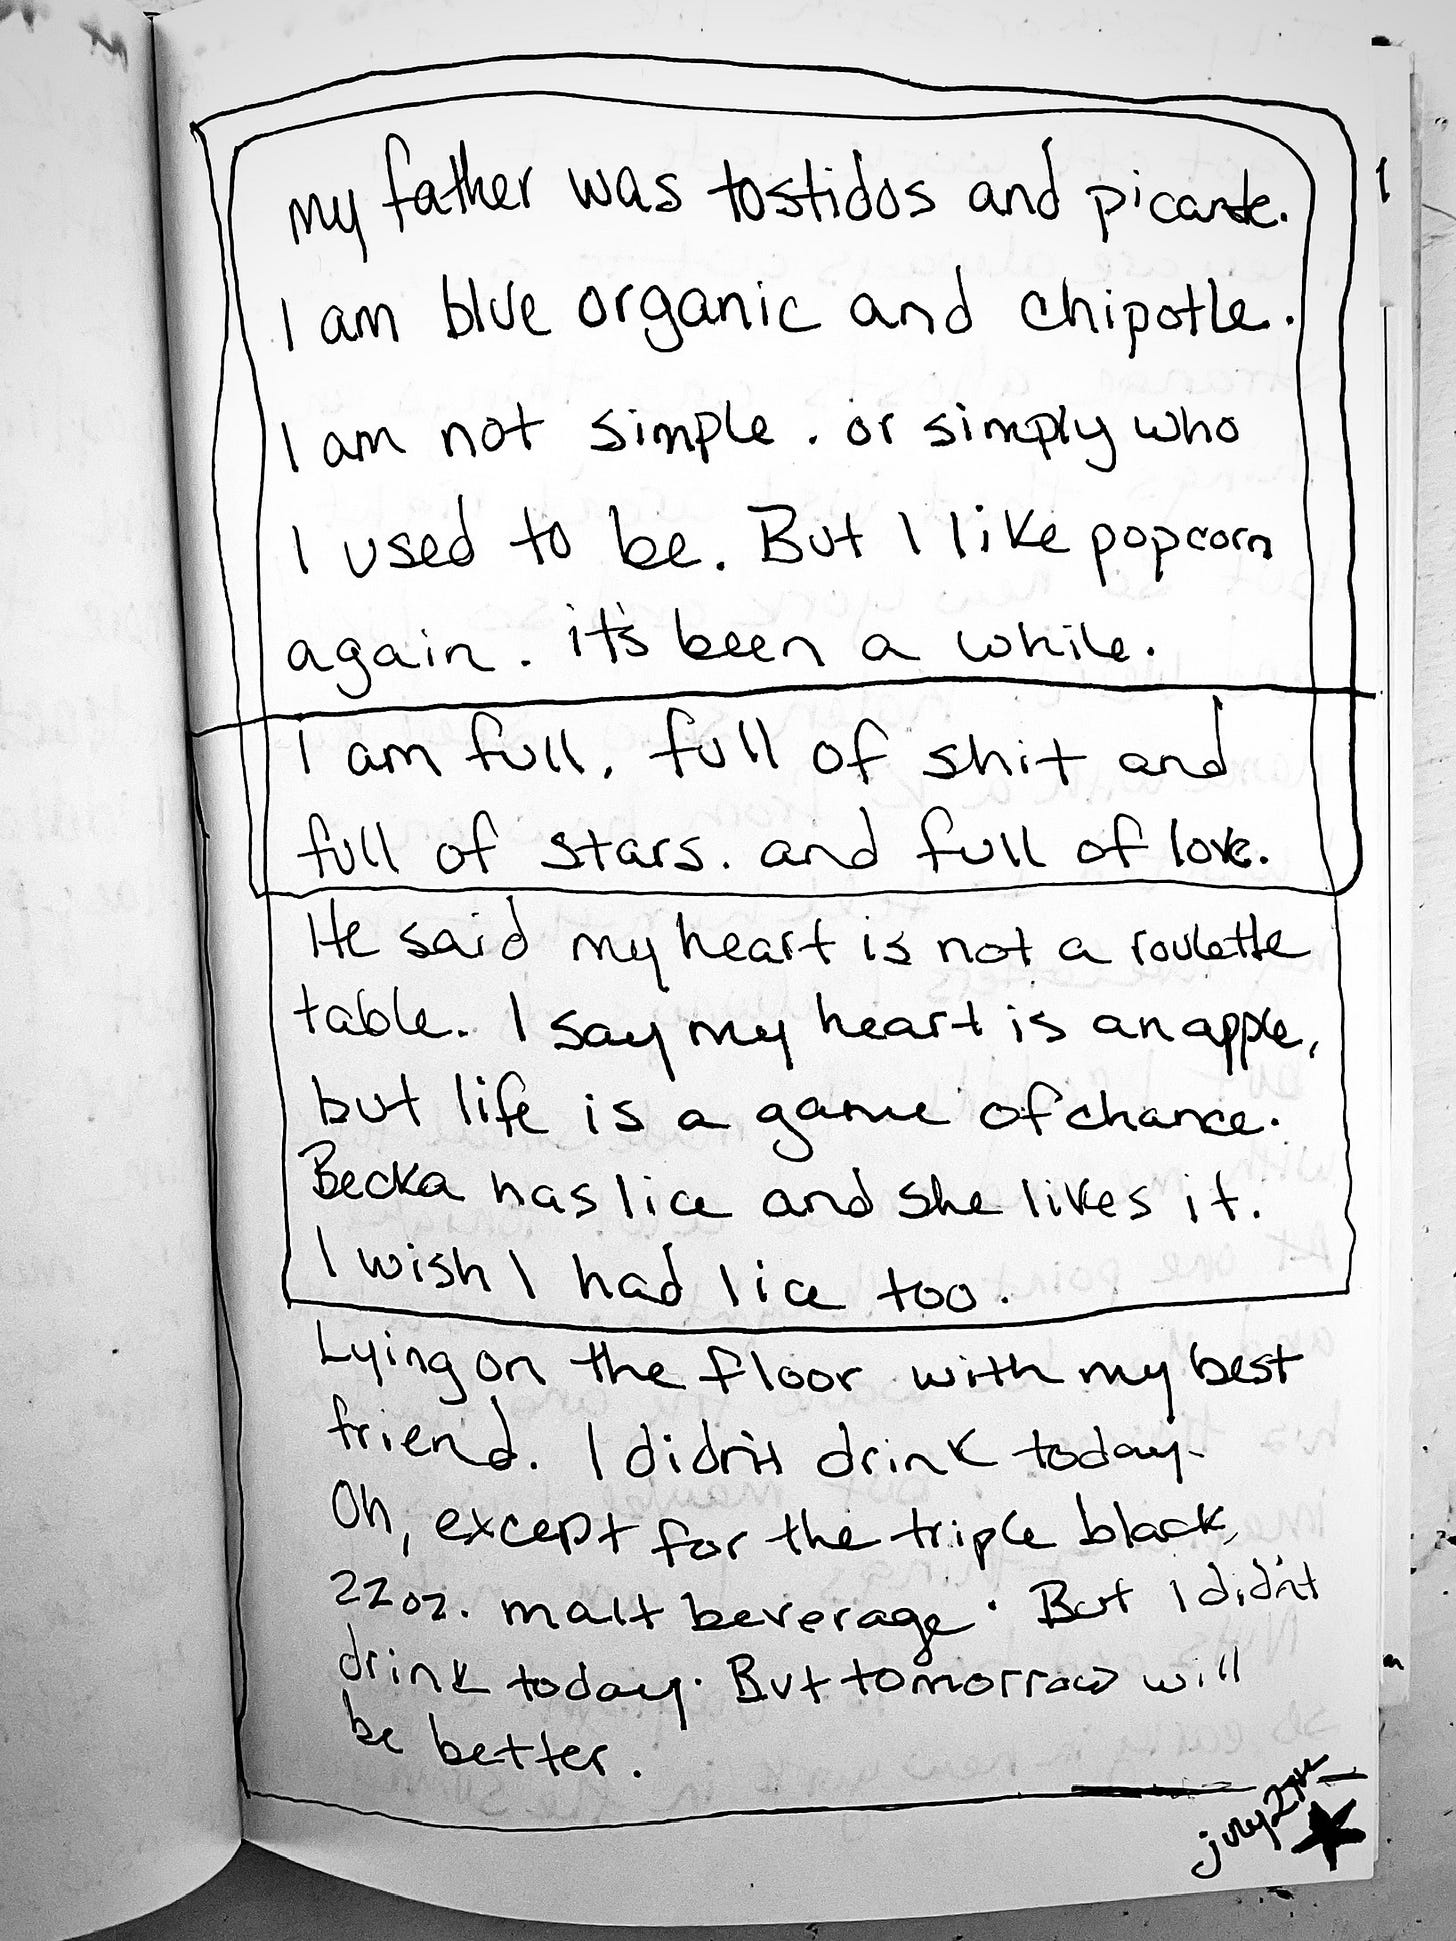 my father was tostidos and picante.
I am blue organic and chipotle.
I am not simple. or simply who
I used to be. But I like popcorn
again. it's been a while.
I am full, full of shit and
full of stars. and full of love.
He said my heart is not a roulette
table. I say my heart is an apple,
but life is a game of chance.
Becka has lice and she likes it.
I wish I had lice too.
Lying on the floor with my best
friend. I didn't drink today.
Oh, except for the triple black,
22oz. malt beverage. But I didn't
drink today. But tomorrow will
be better.